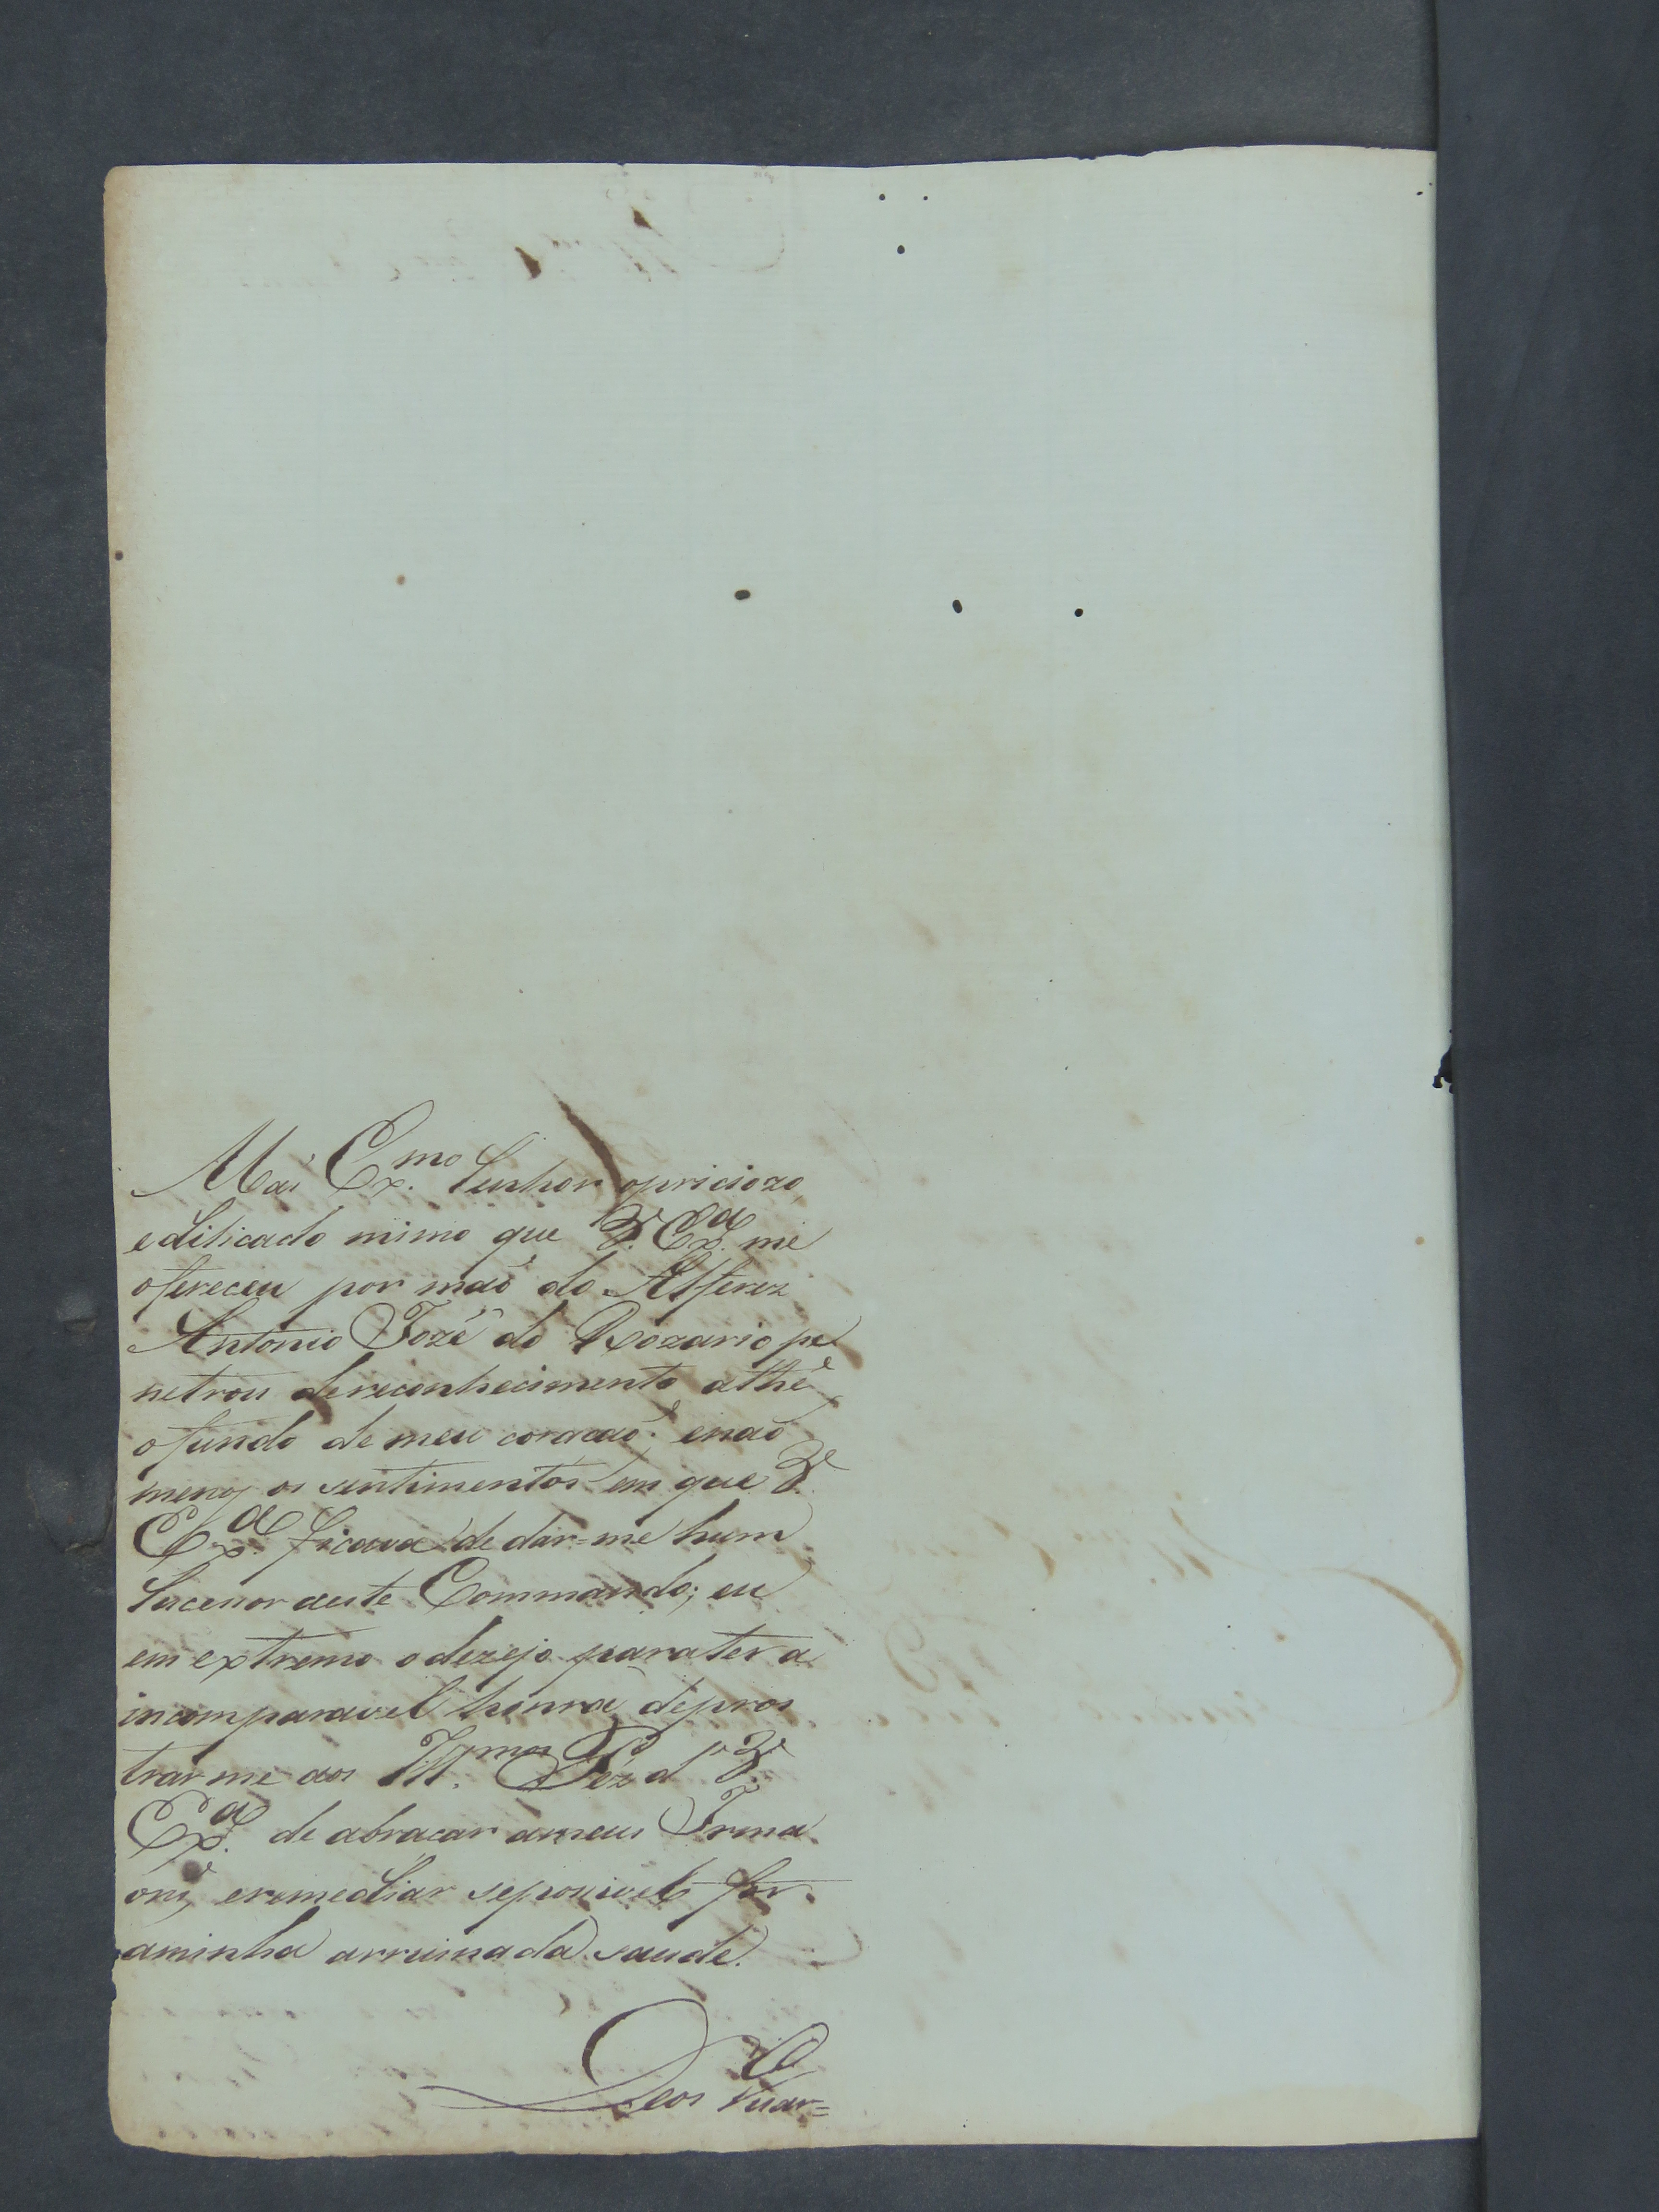 Mas Ex.mo Senhor opriciozo
edilicado mimo que V. Ex.a me
ofereceu por maõ do Alferez
Antonio Jozé do Rozario pe
netrou dereconhecimento athé
ofundo de meu coracaõ; enaõ
menos os sentimentos em que V.
Ex.a ficava de dar=me hum
Sucessor deste Commando; eu
em extremo odezejo parater a
incomparavel honra depros
trar me aos Ill.mos Péz d V.
Ex.a de abracar ameus Irma
ons, eremediar sepossivel for
aminha arruinada saude.
Deos Guar=